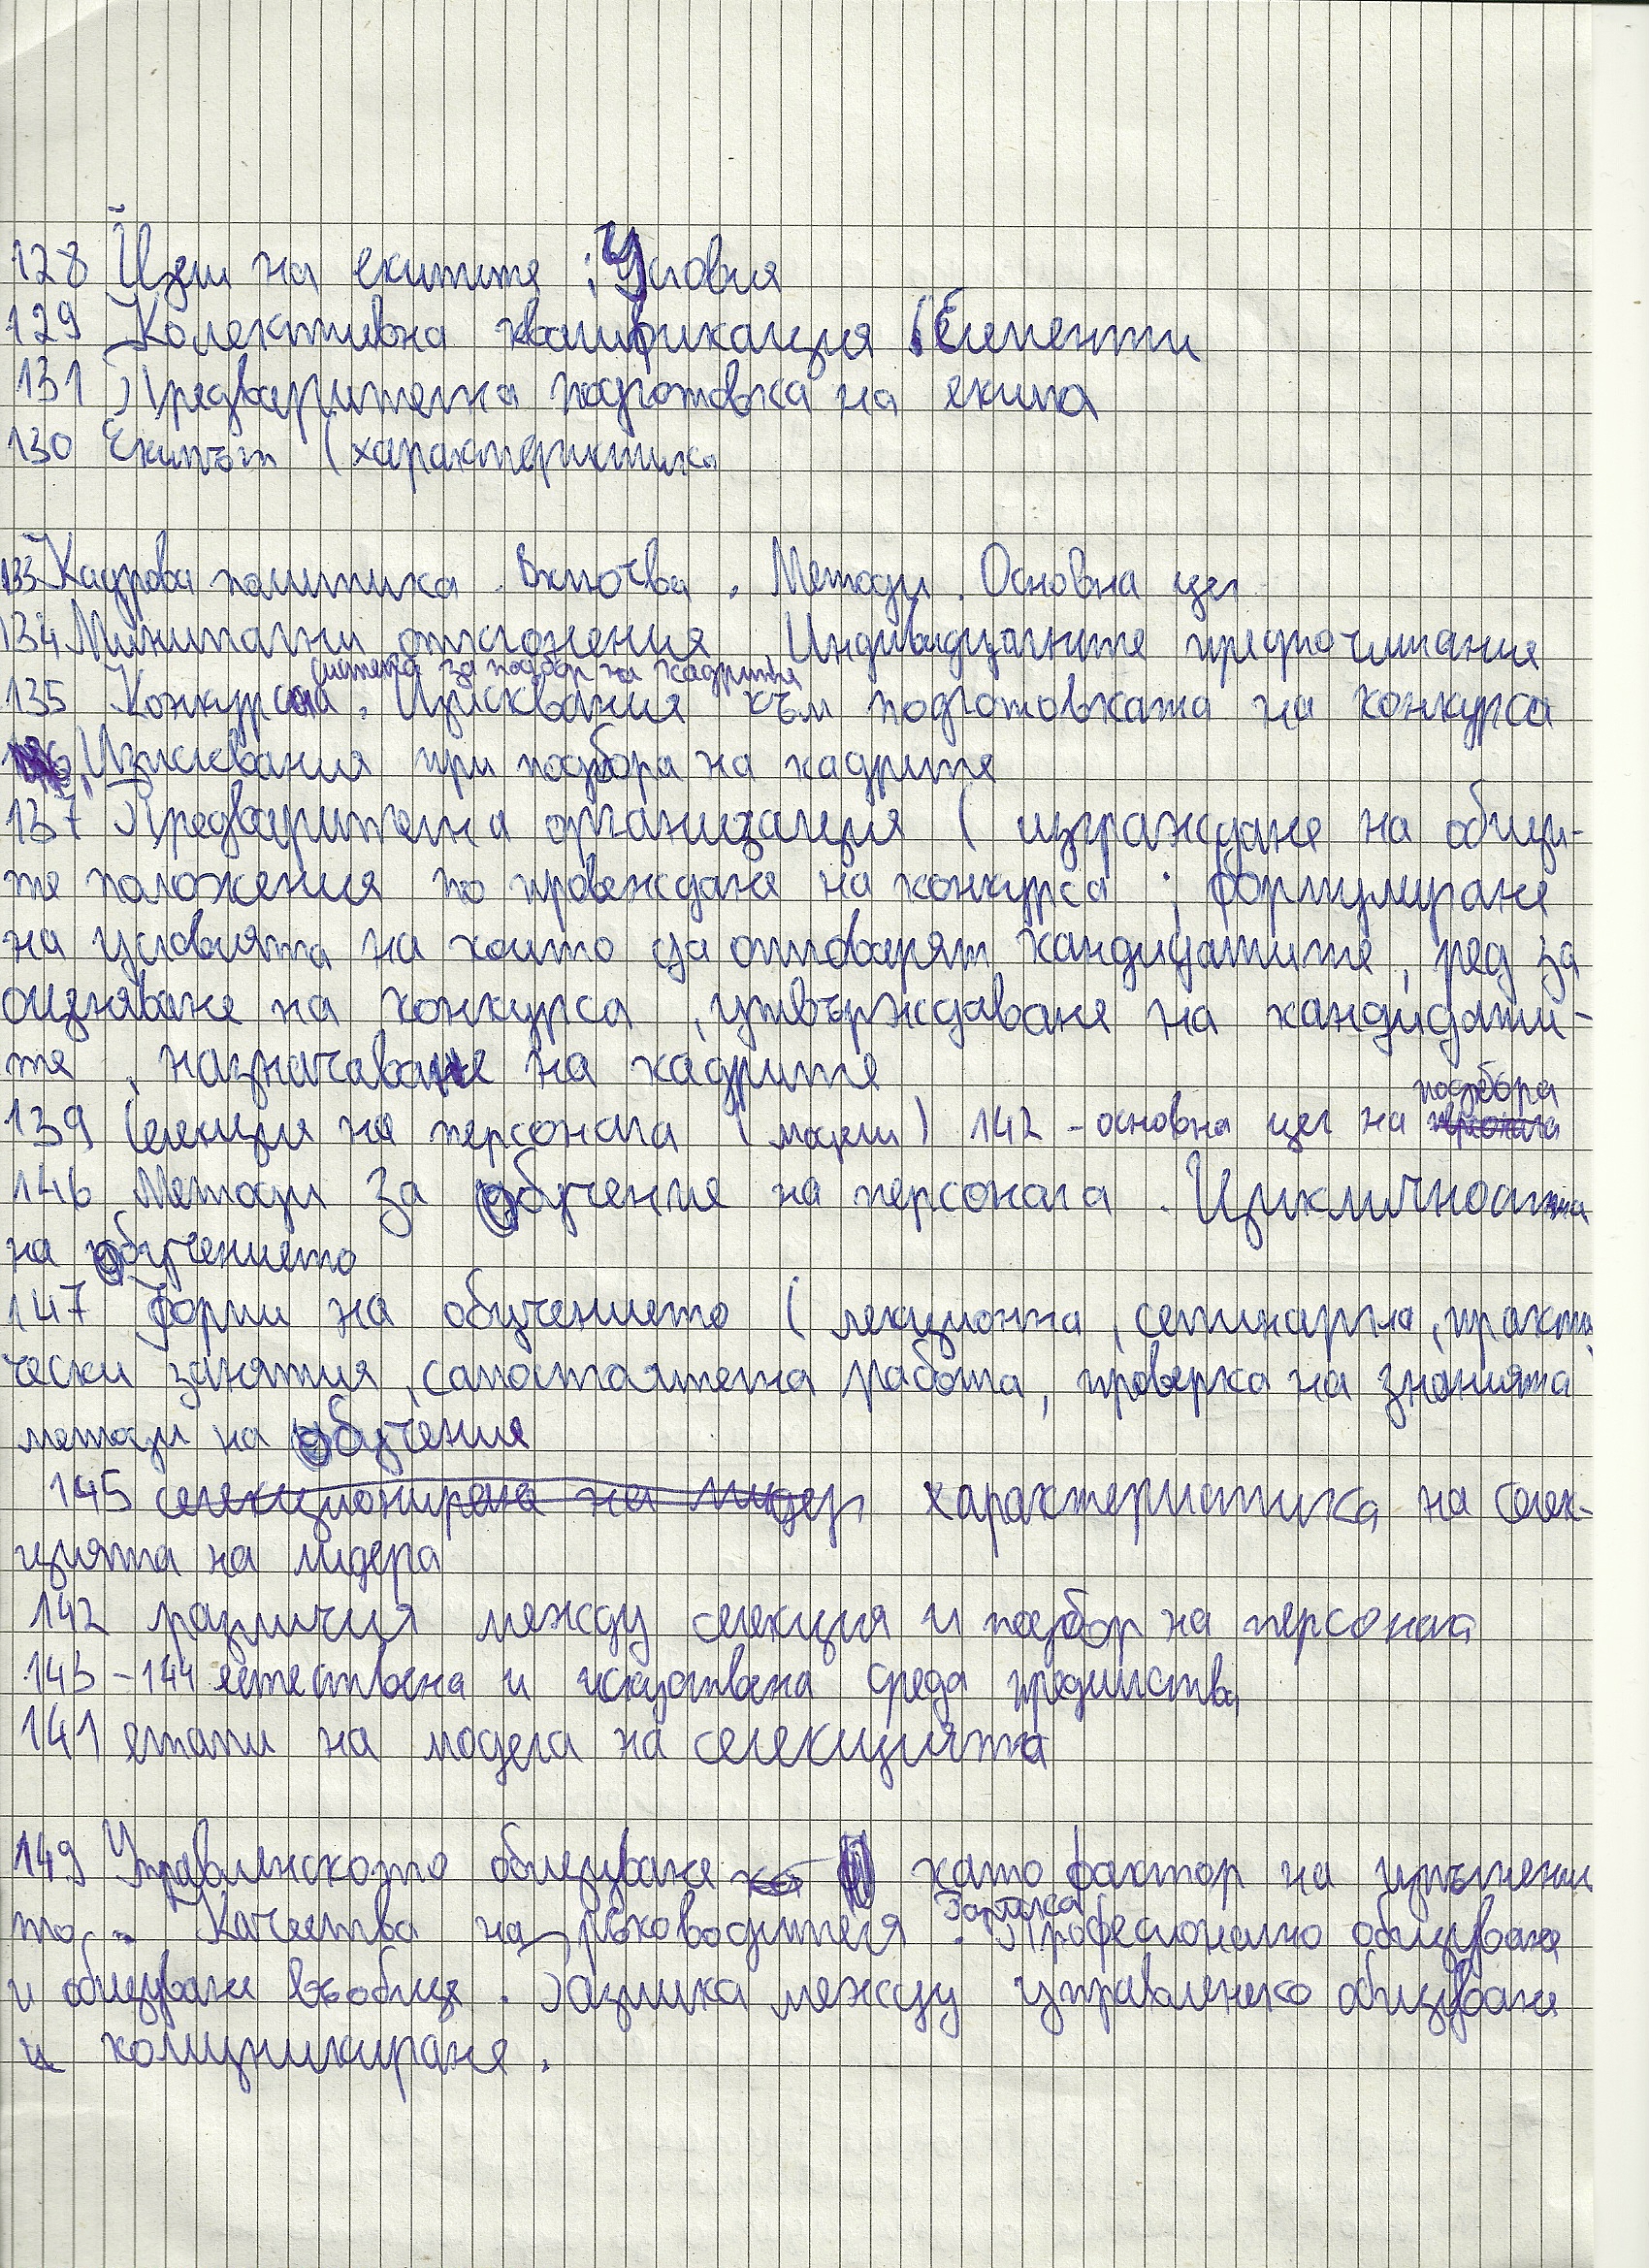 128 Цели на екипите ; Условия
129 Колективна квалификация (Елементи
131 Предварителна подготовка на екипа
130 Екипът (характеристика
133 Кадрова политика. Включва. Методи. Основна цел
134 Минимални отклонения. Индивидуалните предпочитания
система за подбор на кадрите
135 Конкурсна. Изисквания към подготовката на конкурса
136 Изисквания при подбора на кадрите
137 Предварителна организация ( изграждане на общи-
те положения по провеждане на конкурса ; формулиране
на условията на които да отговарят кандидатите, ред за
оценяване на конкурса, утвърждаване на кандидати-
те, назначаване на кадрите
подбора
139 Селекция на персонала (модели) 142 - основна цел на
146 Методи за обучение на персонала. Цикличността
на обучението
147 Форми на обучението ( лекционна, семинарна, практи
чески занятия, самостоятелна работа, проверка на знанията
методи на обучения
145 селекциониране на лидер характеристика на селек-
цията на лидера
142 различия между селекция и подбор на персонал
143-144 естествена и изкуствена среда предимства
141 етапи на модела на селекцията
149 Управленското общуване като фактор на изпълнени
то. Качества на ръководителя. Професионално общуване
и общуване въобще. Разлика между управленско общуване
и комуникиране.